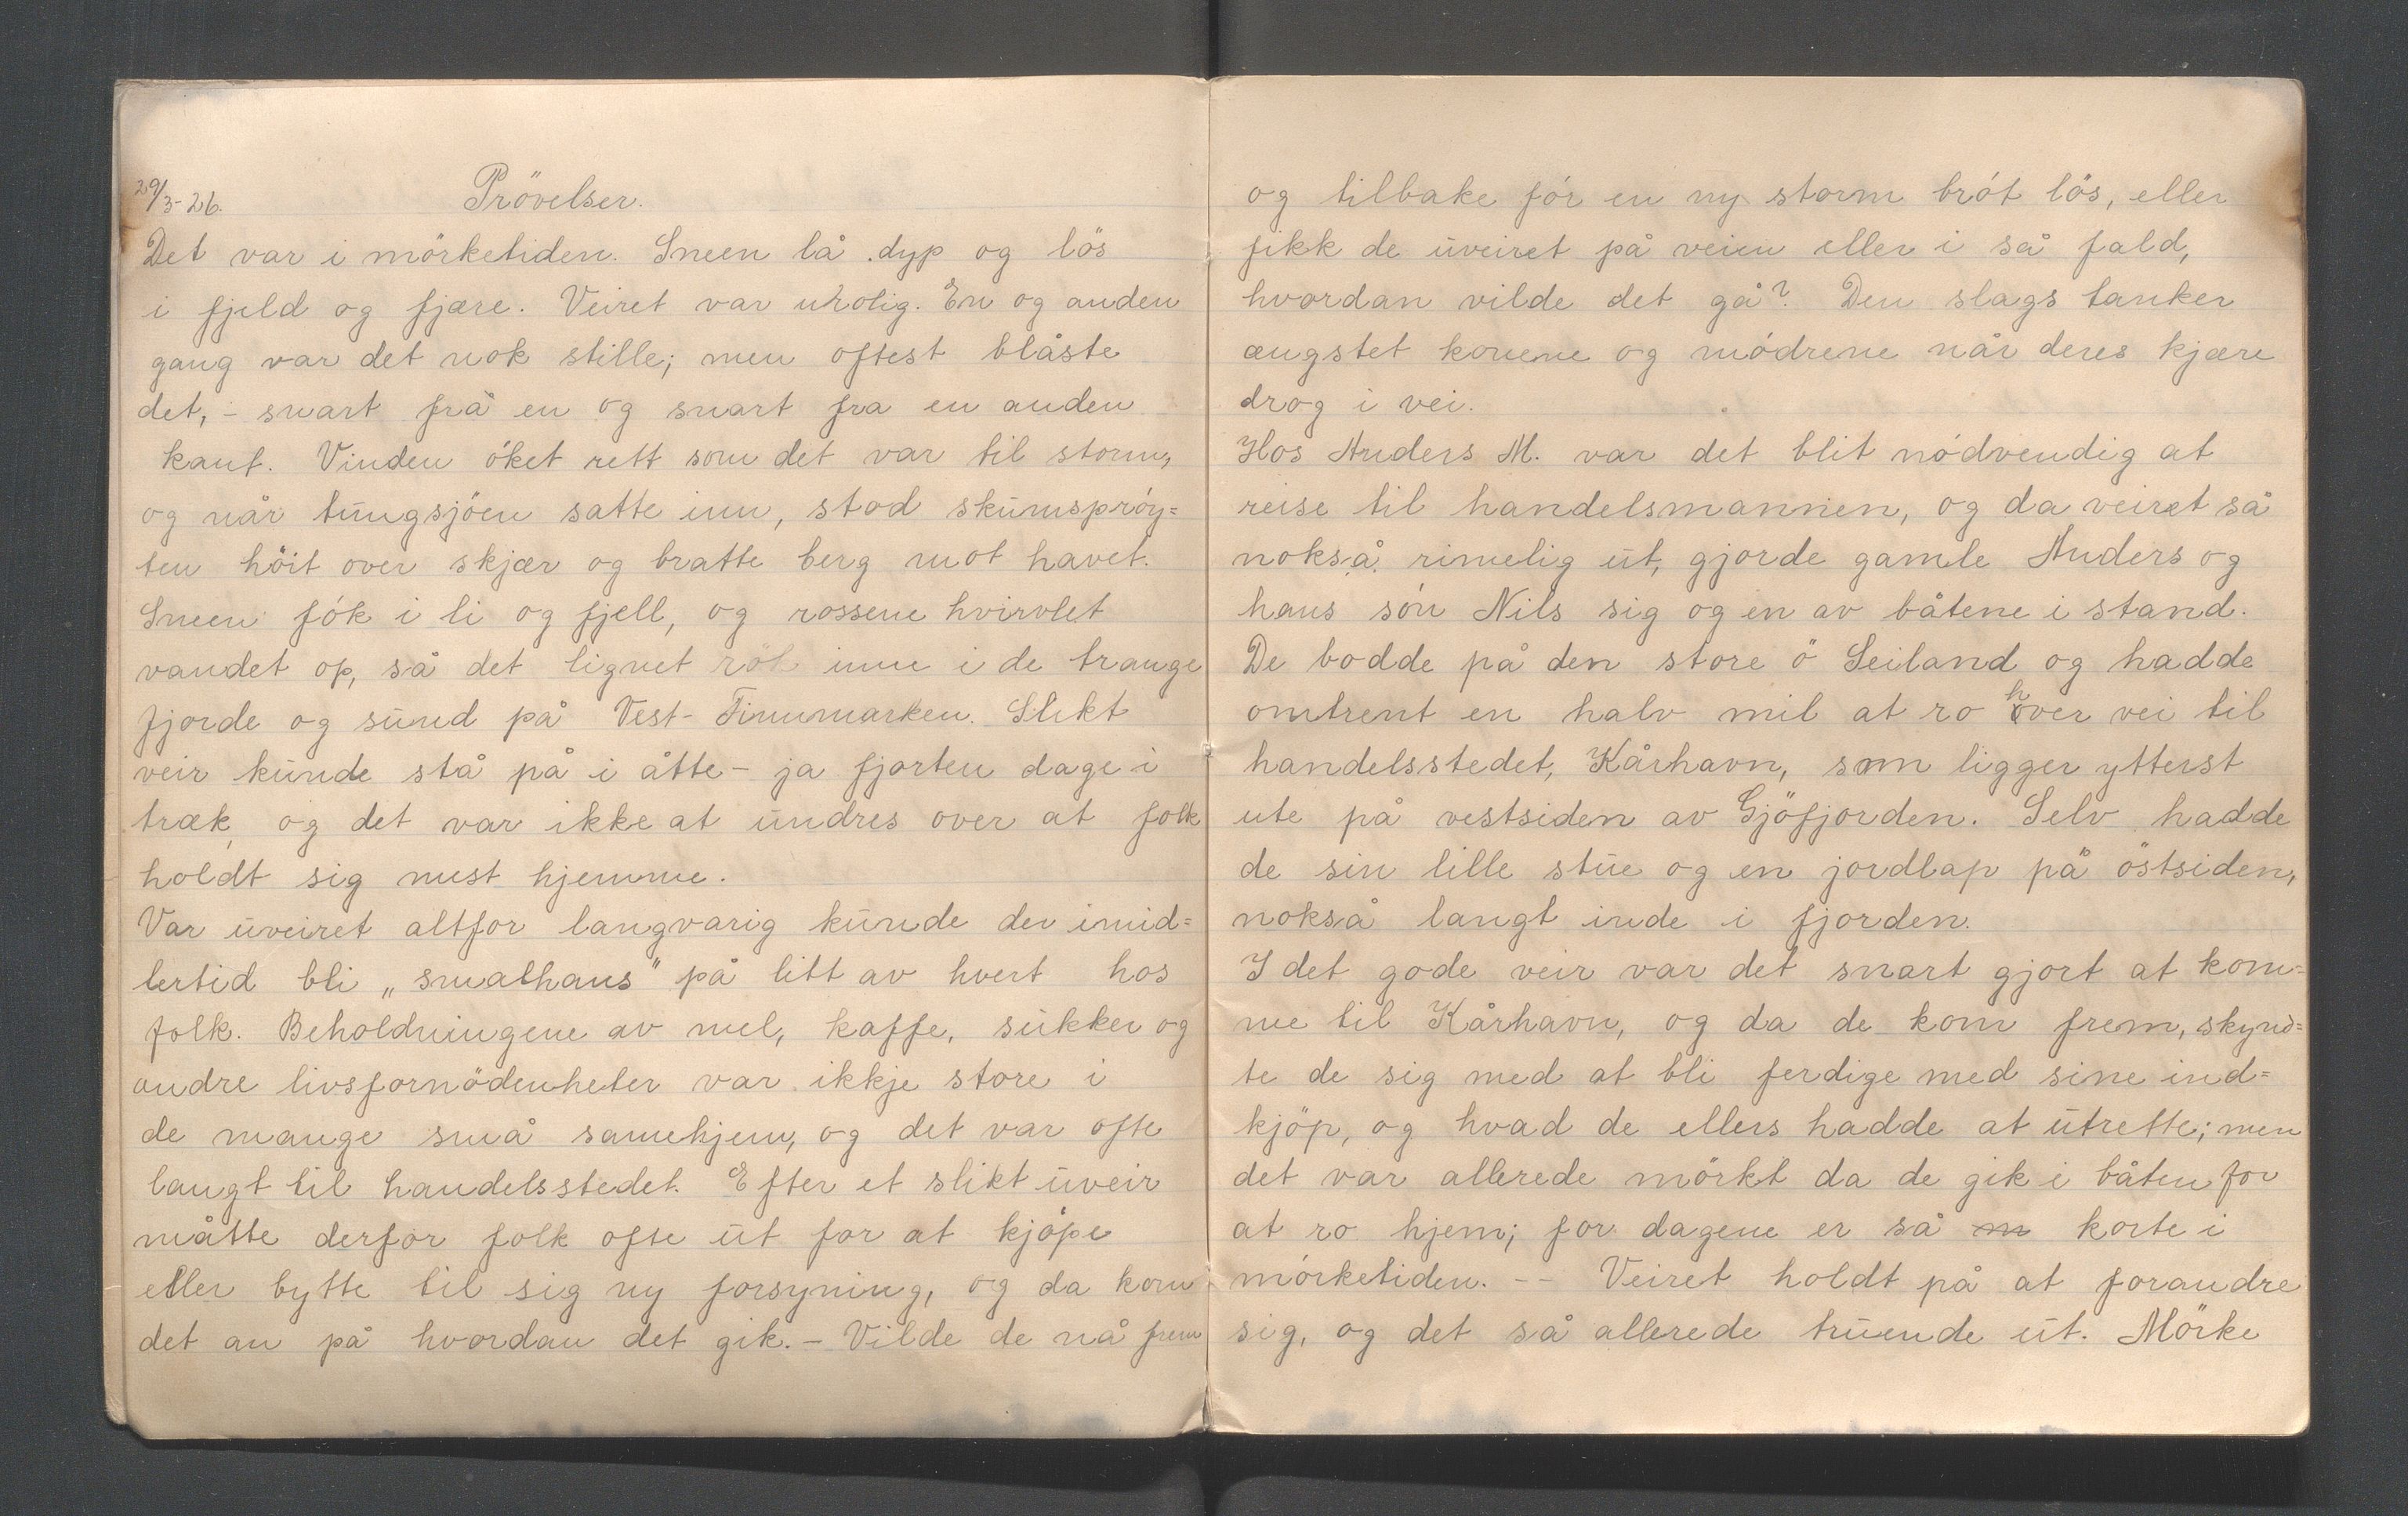 29/3-26. Prövelser.
Det var i mörketiden. Sneen lå dyp og lös
i fjeld og fjære. Veiret var urolig. En og anden
gang var det nok stille; men oftest blåste
det, - snart frå en og snart fra en anden
kant. Vinden öket rett som det var til storm,
og når tungsjöen satte inn, stod skumspröy=
ten höit over skjær og bratte berg mot havet.
Sneen fók i li og fjell, og rossene hvirvlet
vandet op, så det lignet rök inne i de trange
fjorde og sund på Vest-Finnmarken. Slikt
veir kunde stå på i åtte - ja fjorten dage i
træk, og det var ikke at undres over at folk
holdt sig mest hjemme.
Var uveiret altfor langvarig kunde der imid=
lertid bli „smalhans" på litt av hvert hos
folk. Beholdningene av mel, kaffe, sukker og
andre livsfornödenheter var ikkje store i
de mange små samehjem, og det var ofte
langt til handelsstedet. Efter et slikt uveir
måtte derfor folk ofte ut for at kjöpe
eller bytte til sig ny forsyning, og da kom
det an på hvordan det gik. - Vilde de nå frem
og tilbake för en ny storm bröt lös, eller
fikk de uveiret på veien eller i så fald,
hvordan vilde det gå? Den slags tanker
ængstet konene og mödrene når deres kjære
drog i vei.
Hos Anders M. var det blit nödvendig at
reise til handelsmannen, og da veiret så
nokså rimelig ut, gjorde gamle Anders og
hans sön Nils sig og en av båtene i stand.
De bodde på den store ö Seiland og hadde
omtrent en halv mil at ro hver vei til
handelsstedet, Kårhavn, som ligger ytterst
ute på vestsiden av Gjöfjorden. Selv hadde
de sin lille stue og en jordlap på östsiden,
nokså langt inde i fjorden.
I det gode veir var det snart gjort at kom=
me til Kårhavn, og da de kom frem, skynd=
te de sig med at bli ferdige med sine ind=
kjöp, og hvad de ellers hadde at utrette; men
det var allerede mörkt da de gik i båten for
at ro hjem; for dagene er så m korte i
mörketiden. -- Veiret holdt på at forandre
sig, og det så allerede truende ut. Mörke